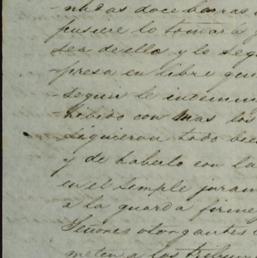 nadas doce barras
pusiere lo tomara
sea de ello y lo seg
presa en libre que
segun le
hibido con mas los
siguieron todo bien
y de haberlo con la
en el simple juram
a la guarda firme
Señores otorgantes
meten a los tribun